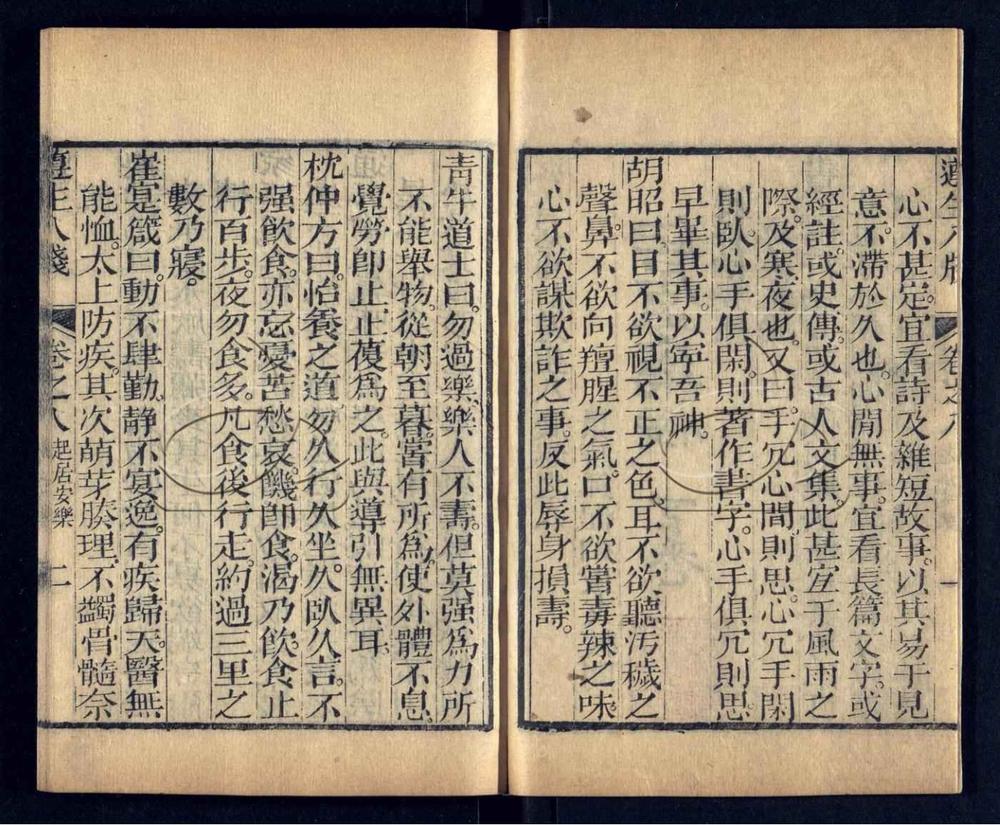 遵生八牋 卷之八 一
心不甚定。宜看詩及雜短故事。以其易于見
意。不滯於久也。心閒無事。宜看長篇文字。或
經註。或史傳。或古人文集。此甚宜于風雨之
際。及寒夜也。又曰。手冗心閒。則思。心冗手閑。
則臥。心手俱閑。則著作書字。心手俱冗。則思
早畢其事。以寧吾神。
胡昭曰。目不欲視不正之色。耳不欲聽汚穢之
聲。鼻不欲向羶腥之氣。口不欲嘗毒辣之味。
心不欲謀欺詐之事。反此辱身損壽。
青牛道士曰。勿過樂。樂人不壽。但莫强爲力所
不能。舉物。從朝至暮。嘗有所爲。使外體不息。
覺勞卽止。止復爲之。此與導引無異耳。
枕仲方曰。怡養之道。勿久行久坐。久臥久言。不
强飲食。亦忘憂苦愁哀。饑卽食。渴乃飲。食止
行百步。夜勿食多。凡食後行走。約過三里之
數乃寢。
崔寔箴曰。動不肆勤。静不宴逸。有疾歸天。醫無
能恤。太上防疾。其次萌芽。腠理不蠲。骨髓奈
遵生八牋 卷之八 起居安樂 二